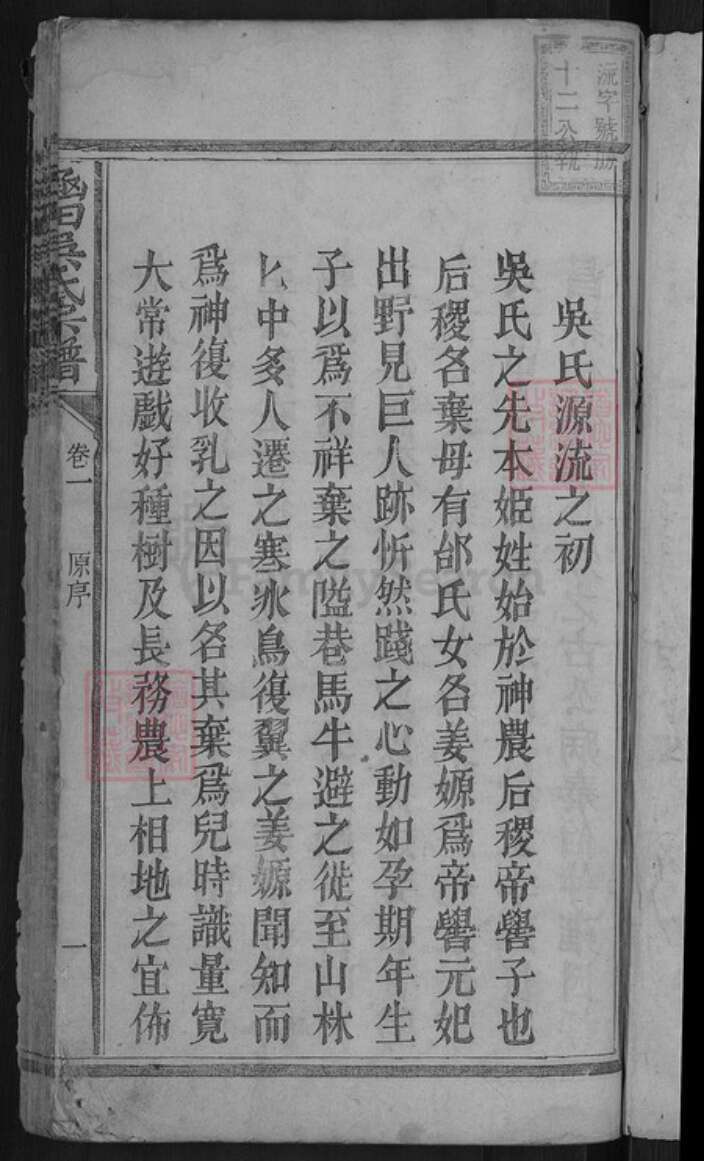 流字號
十二公執
吳氏源流之初
吳氏之先本姬姓始於神農后稷帝嚳子也
后稷名棄母有邰氏女名姜嫄爲帝嚳元妃
出野見巨人跡忻然踐之心動如孕期年生
子以爲不祥棄之隘巷馬牛避之徙至山林
中多人遷之寒冰鳥復翼之姜嫄聞知而
爲神復收乳之因以名其棄爲兒時識量寬
大常遊戲好種樹及長務農上相地之宜佈
吳氏宗譜
卷一
原序
一